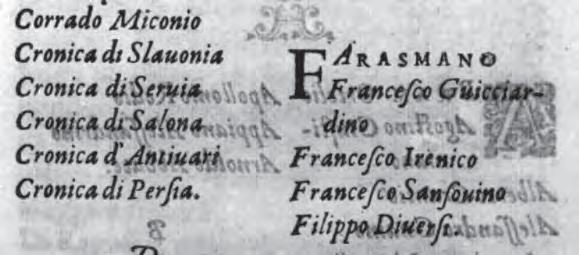 Corrado Miconio
Cronica di Slauonia
Cronica di Seruia
Cronica di Salona
Cronica d' Antiuari
Cronica di Persia.
FARASMANO
Francesco Guicciar-
dino
Francesco Irenico
Francesco Sansouino
Filippo Diuersi.